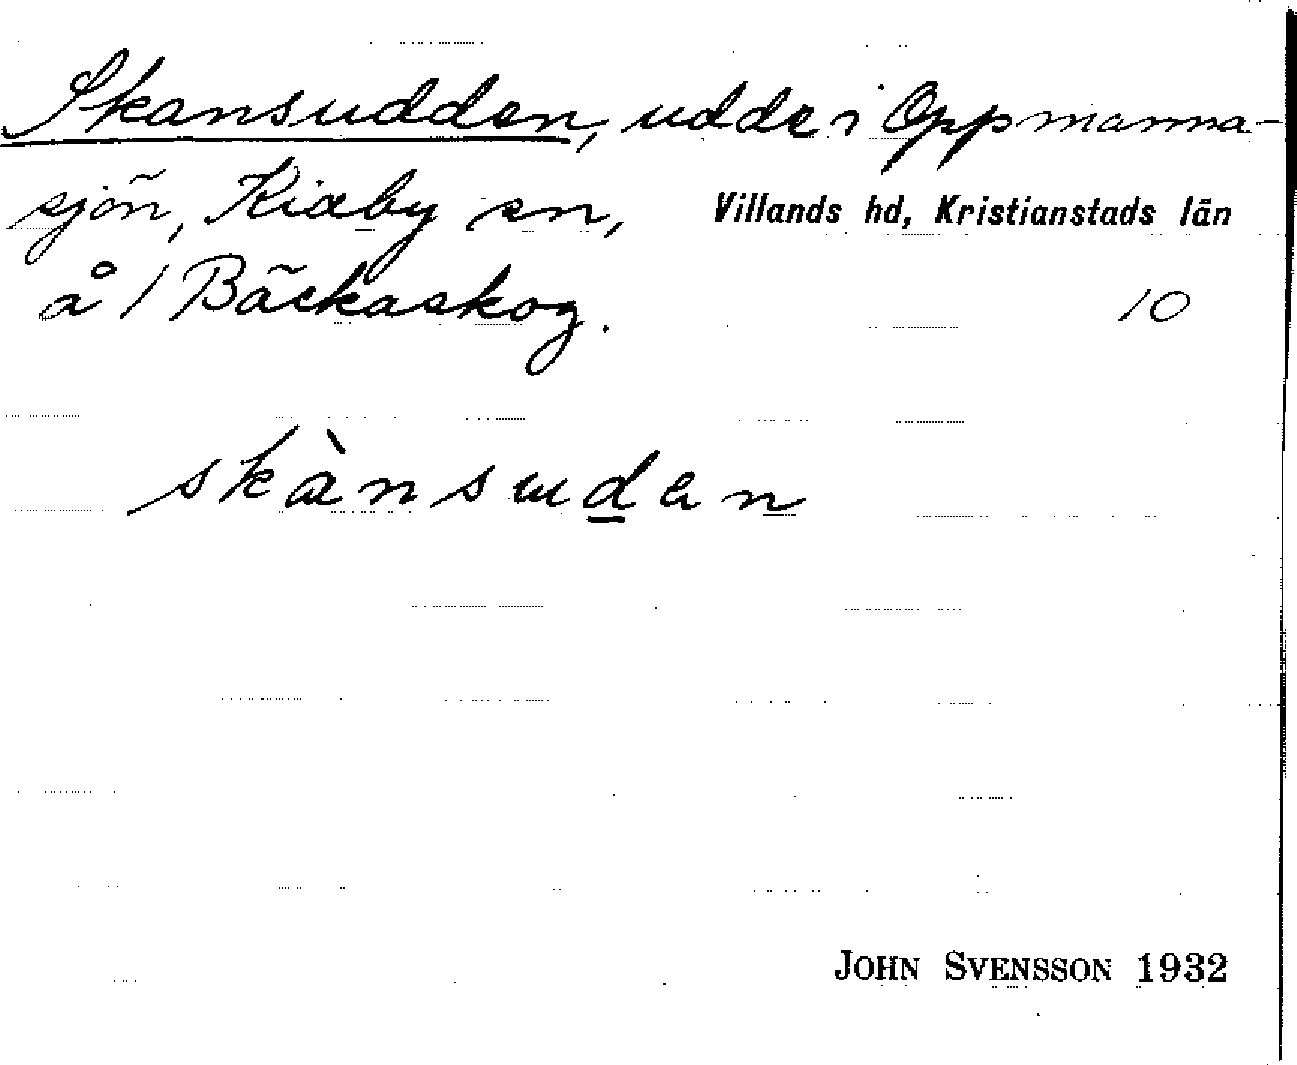 Skansudden, udde i Oppmanna-
sjön, Kiaby sn, Villands hd, Kristianstads län
å 1 Bäckaskog. 10
skànsuden
JOHN SVENSSON 1932